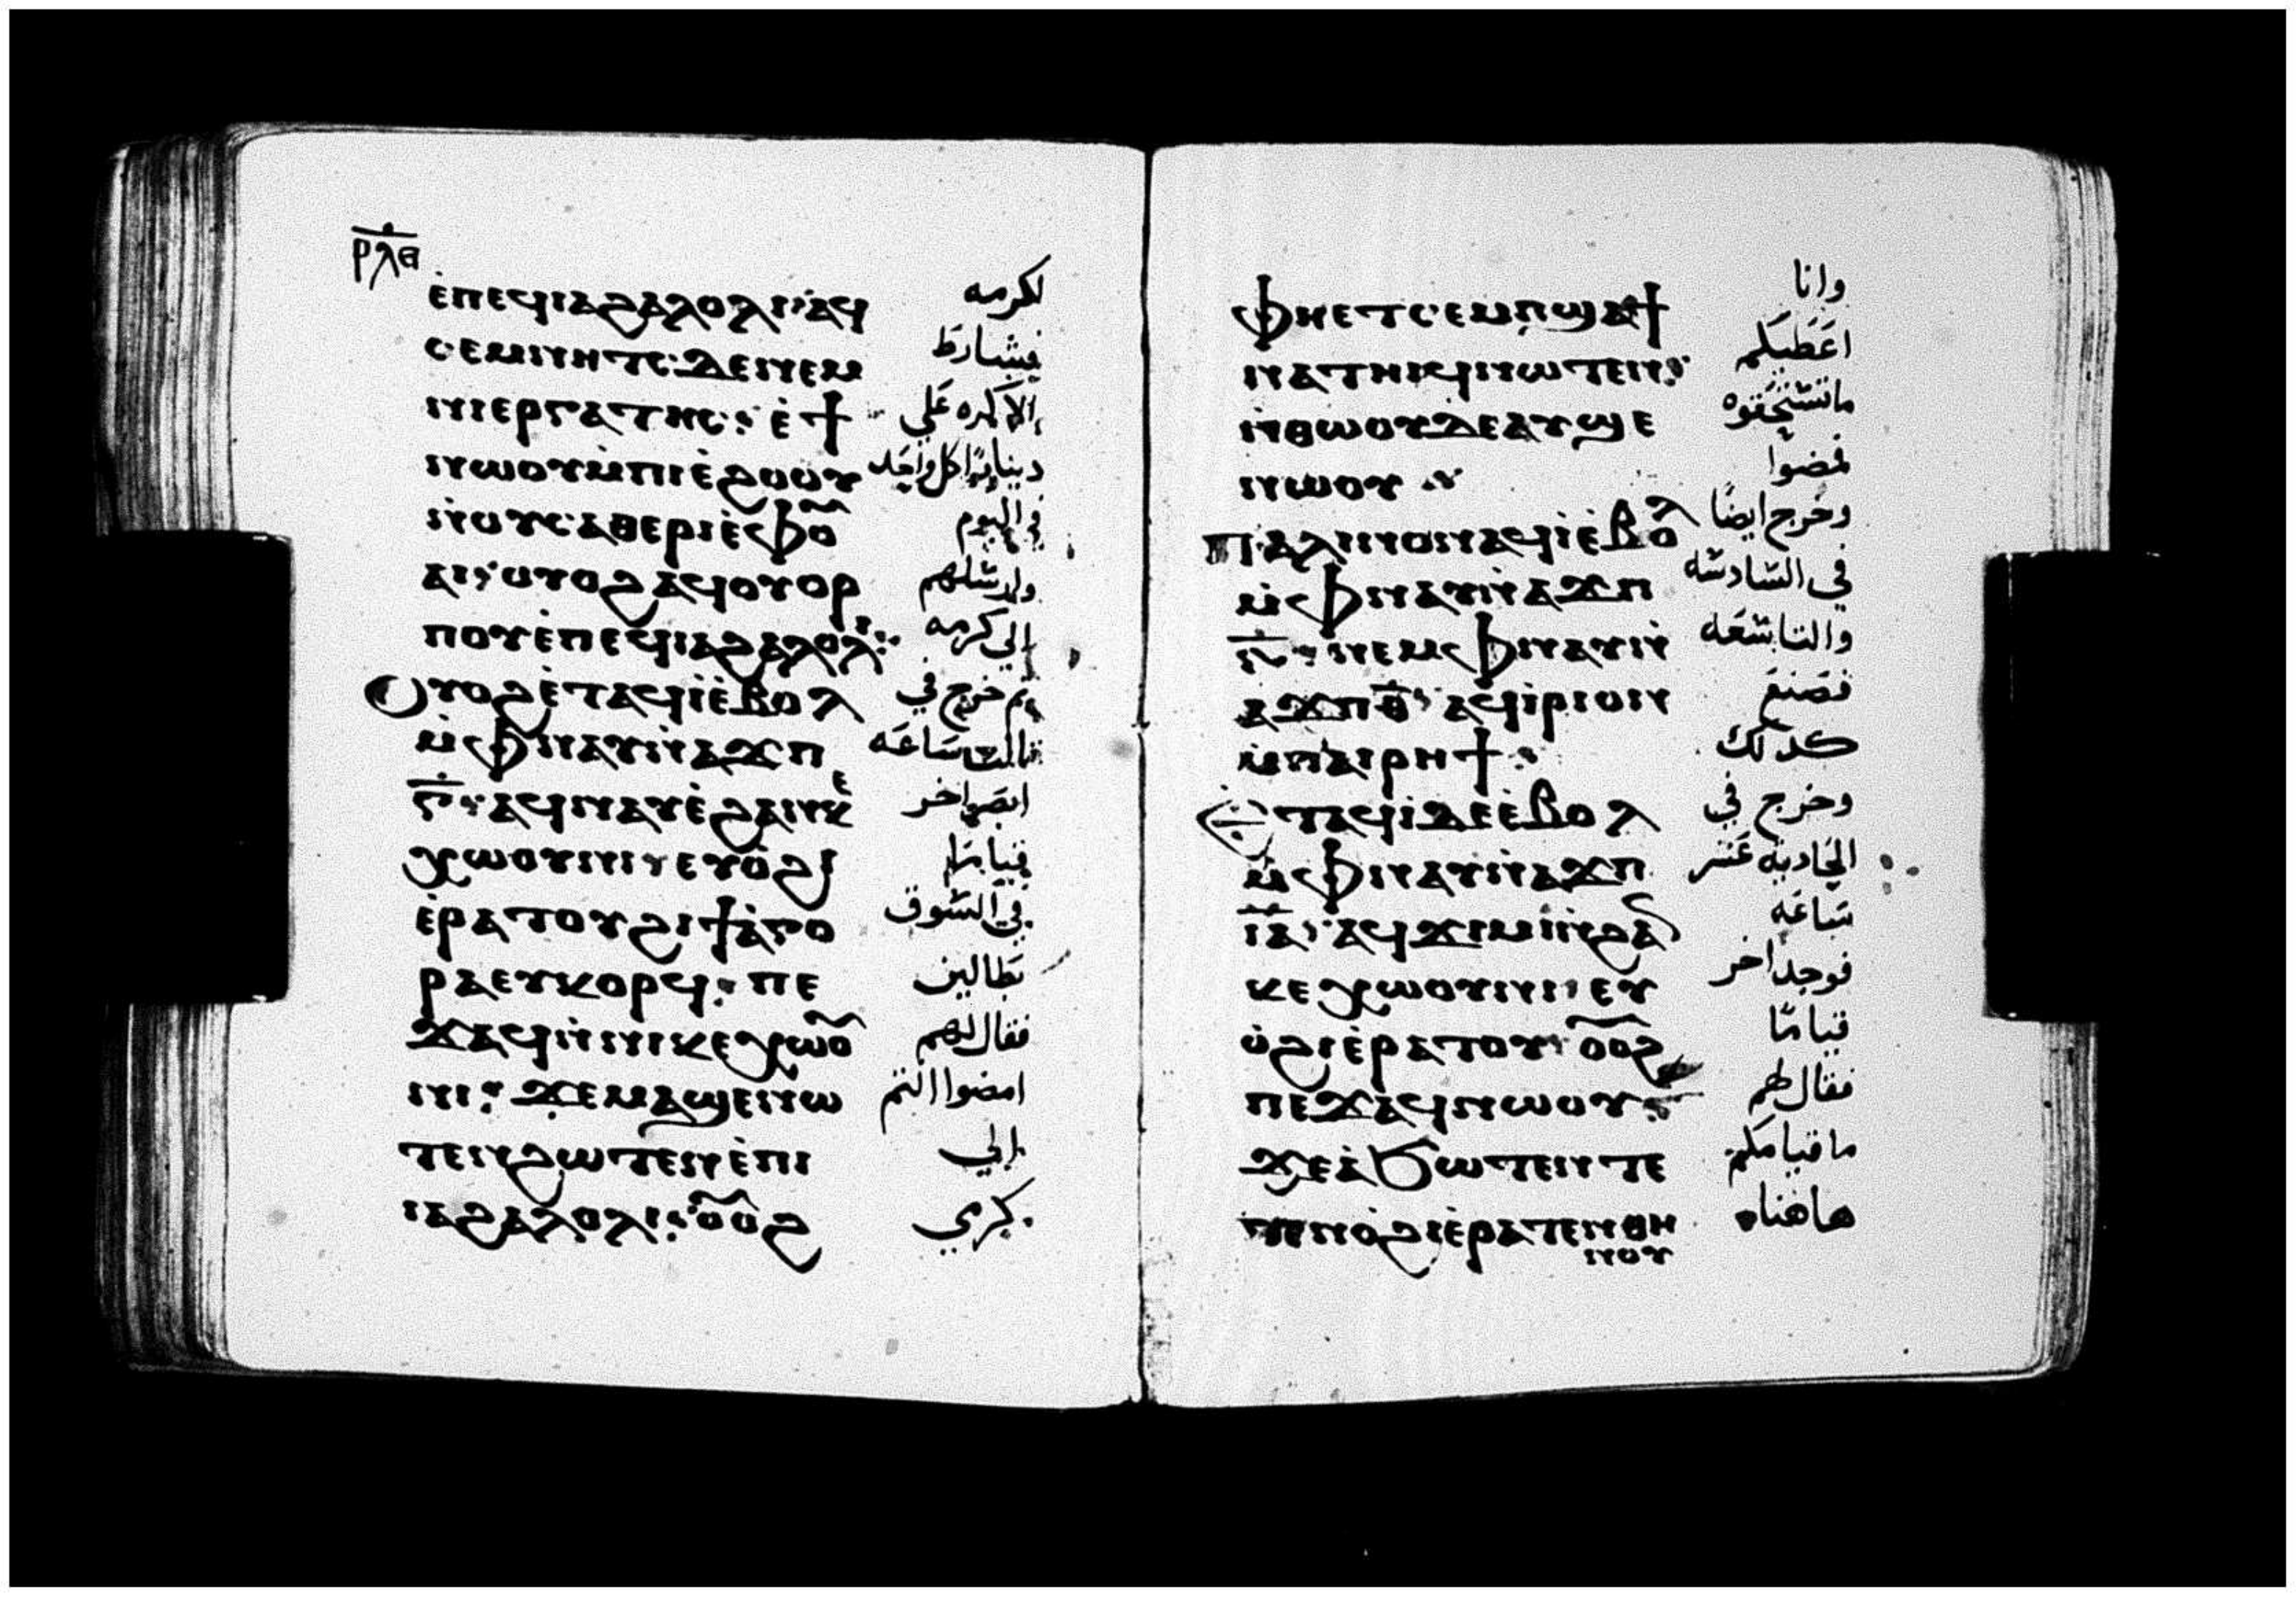 ⲣⲗⲑ
ⲉ̀ⲡⲉϥⲓⲁϩⲁⲗⲟⲗⲓ ⲁϥ
ⲥⲉⲙⲛⲏⲧⲥ ⲇⲉ ⲛⲉⲙ
ⲛⲓⲉⲣⲅⲁⲧⲏⲥ: ⲉ̀ϯ
ⲛⲱⲟⲩ ⲙ̀ⲡⲓⲉ̀ϩⲟⲟⲩ
ⲛ̀ⲟⲩⲥⲁⲑⲉⲣⲓ ⲉ̀ⲫⲟ
ⲁⲓ: ⲟⲩⲟϩ ⲁϥⲟⲩⲟⲣ
ⲡⲟⲩ ⲉ̀ⲡⲉϥⲓⲁϩⲁⲗⲟⲗⲓ:
ⲟⲩⲟϩ ⲉ̀ⲧⲁϥⲓ̀ ⲉ̀ⲃⲟⲗ
ⲙ̀ⲫⲛⲁⲩ ⲛ̀ⲁϫⲡ
ⲅ̅: ⲁϥⲛⲁⲩ ⲉ̀ϩⲁⲛⲕⲉ̀
ⲭⲱⲟⲩⲛⲓ ⲉⲩⲟ̀ϩⲓ
ⲉ̀ⲣⲁⲧⲟⲩ ϩⲓ ϯⲁ̀ⲅⲟ
ⲣⲁ ⲉⲩⲕⲟⲣϥ: ⲡⲉ
ϫⲁϥ ⲛ̀ⲛⲓⲕⲉⲭⲱⲟ
ⲛⲓ: ϫⲉ ⲙⲁϣⲉⲛⲱ
ⲧⲉⲛ ϩⲱⲧⲉⲛ ⲉ̀ⲡⲓ
ⲓⲁϩⲁⲗⲟⲗⲓ: ⲟⲟϩ
لكرمه
فشارط
الاكره علي
دينارًا كل واحد
في اليوم
وارسلهم
إلي كرمه
ثم خرج في
ثالث ساعه
ابصر اخر
قياما
في السوق
بطالين
فقال لهم
امضوا انتم
إلي
كرمي
ⲫⲏⲉⲧⲥⲉⲙⲡϣⲁ ϯ
ⲛⲁⲧⲏⲓϥ ⲛⲱⲧⲉⲛ:
ⲛ̀ⲑⲱⲟⲩ ⲇⲉ ⲁⲩϣⲉ
ⲛⲱⲟⲩ ⁘
ⲡⲁⲗⲓⲛ ⲟⲛ ⲁϥⲓ̀ ⲉ̀ⲃⲟⲗ
ⲙ̀ⲫⲛⲁⲩ ⲛ̀ⲁϫⲡ
ⲋ̅: ⲛⲉⲙ ⲫⲛⲁⲩ ⲛ̀
ⲁϫⲡ ⲑ̅: ⲁϥⲓ̀ⲣⲓ ⲟⲛ
ⲙ̀ⲡⲁⲓⲣⲏϯ:
ⲉ̀ⲧⲁϥⲓ̀ ⲇⲉ ⲉ̀ⲃⲟⲗ
ⲙ̀ⲫⲛⲁⲩ ⲛ̀ⲁϫⲡ
ⲓ̅ⲁ̅: ⲁϥϫⲓⲙⲓ ⲛ̀ϩⲁⲛ
ⲕⲉⲭⲱⲟⲩⲛⲓ ⲉⲩ
ⲟ̀ϩⲓ ⲉ̀ⲣⲁⲧⲟⲩ ⲟⲟϩ
ⲡⲉϫⲁϥ ⲛⲱⲟⲩ:
ϫⲉ ⲁ̀ϭⲱⲧⲉⲛ ⲧⲉ
ⲧⲉⲛⲟ̀ϩⲓ ⲉ̀ⲣⲁⲧⲉⲛⲑⲏ
ⲛⲟⲩ
وانا
اعطيكم
ماتستحقوه
فمضوا
وخرج ايضًا
في السادسه
والتاسعه
فصنع
كذلك
وخرج في
الحاديه عشر
ساعه
فوجد اخر
قياما
فقال لهم
ما قيامكم
هاهناه